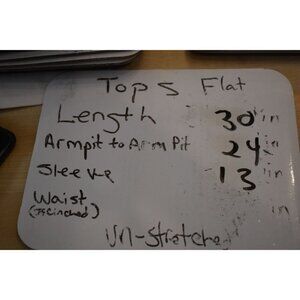 Tops Flat
Length 30 in
Armpit to Arm Pit 24 in
Sleeve 13 in
Waist in
(If Cinched)
Un-Stretched